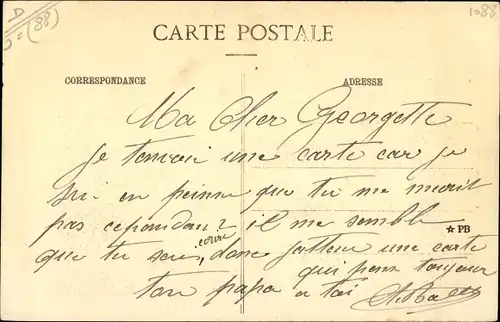 D
(88)
1088
CARTE POSTALE
CORRESPONDANCE
ADRESSE
Ma Cher Georgette
Je tenvoi une carte car je
sui en peinne que tu me
pas cependan? il me semble
ecrire
que tu , donc jatten une carte
☆ PB
qui pense toujour
ton papa a toi